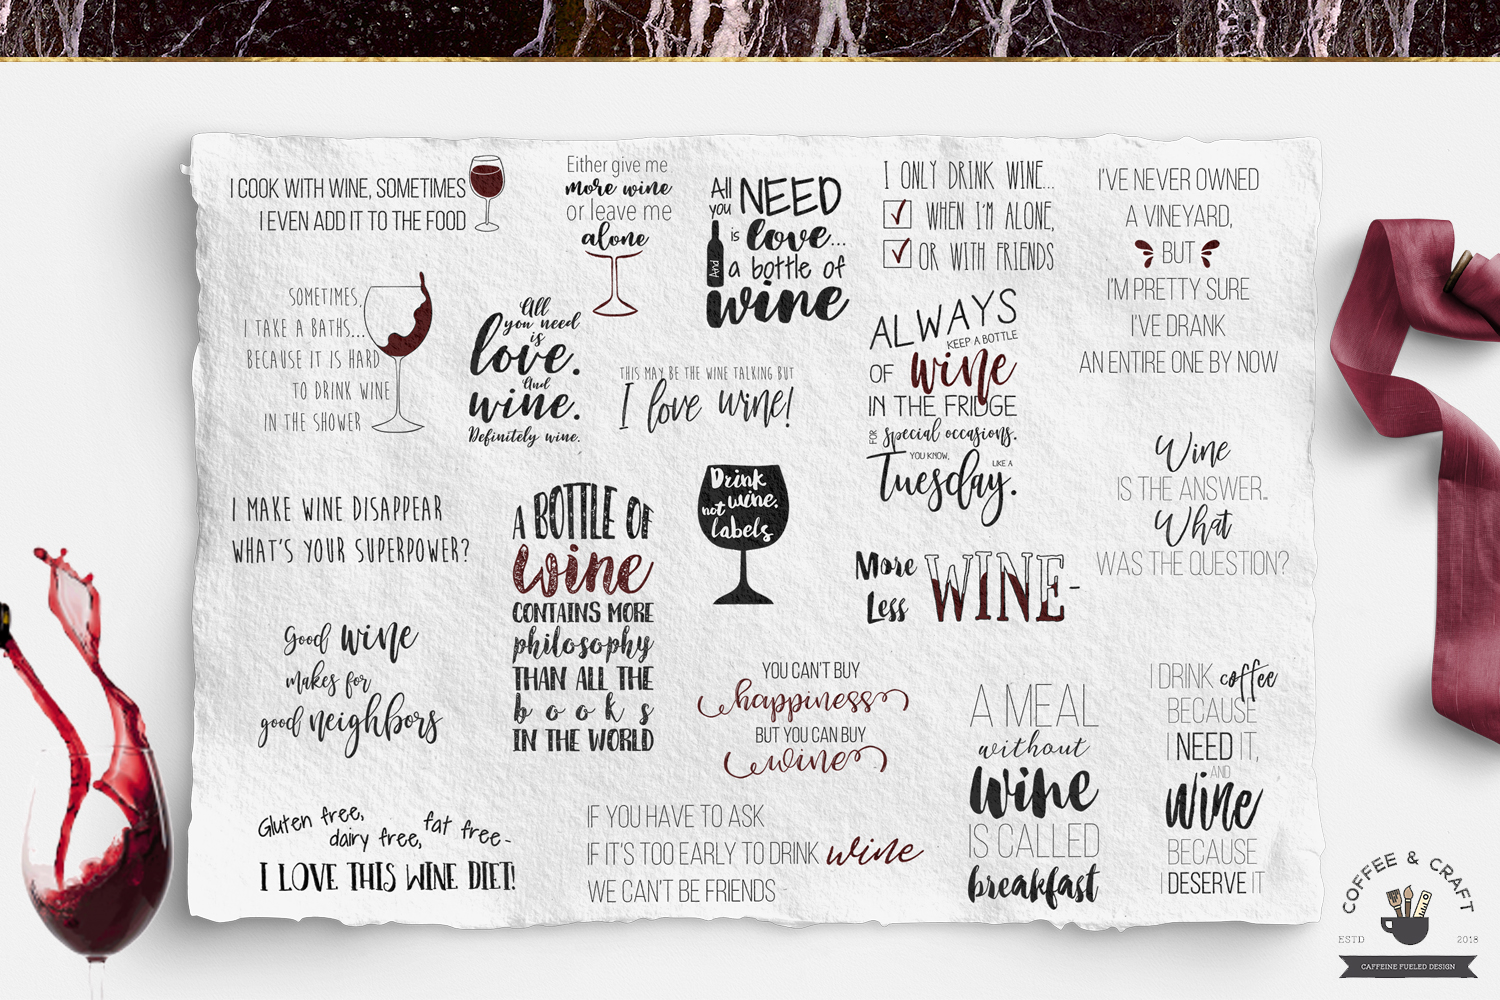 I COOK WITH WINE, SOMETIMES
I EVEN ADD IT TO THE FOOD
Either give me
more wine
or leave me
alone
All
you
NEED
is love...
And
a bottle of
wine
I ONLY DRINK WINE...
WHEN I'M ALONE,
OR WITH FRIENDS
I'VE NEVER OWNED
A VINEYARD,
BUT
I'M PRETTY SURE
I'VE DRANK
AN ENTIRE ONE BY NOW
SOMETIMES,
I TAKE A BATHS...
BECAUSE IT IS HARD
TO DRINK WINE
IN THE SHOWER
All
you need
is
love.
And
wine.
Definitely wine.
THIS MAY BE THE WINE TALKING BUT
I love wine!
ALWAYS
KEEP A BOTTLE
OF wine
IN THE FRIDGE
FOR special occasions.
YOU KNOW, LIKE A
Tuesday.
Wine
IS THE ANSWER..
What
WAS THE QUESTION?
I MAKE WINE DISAPPEAR
WHAT'S YOUR SUPERPOWER?
A BOTTLE OF
wine
CONTAINS MORE
philosophy
THAN ALL THE
books
IN THE WORLD
Drink
not wine.
labels
More
Less
WINE-
Good wine
makes for
good neighbors
YOU CAN'T BUY
happiness
BUT YOU CAN BUY
wine
A MEAL
without
wine
IS CALLED
breakfast
I DRINK coffee
BECAUSE
I NEED IT,
AND
wine
BECAUSE
I DESERVE IT
Gluten free,
dairy free, fat free-
I LOVE THIS WINE DIET!
IF YOU HAVE TO ASK
IF IT'S TOO EARLY TO DRINK wine
WE CAN'T BE FRIENDS
COFFEE & CRAFT
ESTD 2018
CAFFEINE FUELED DESIGN